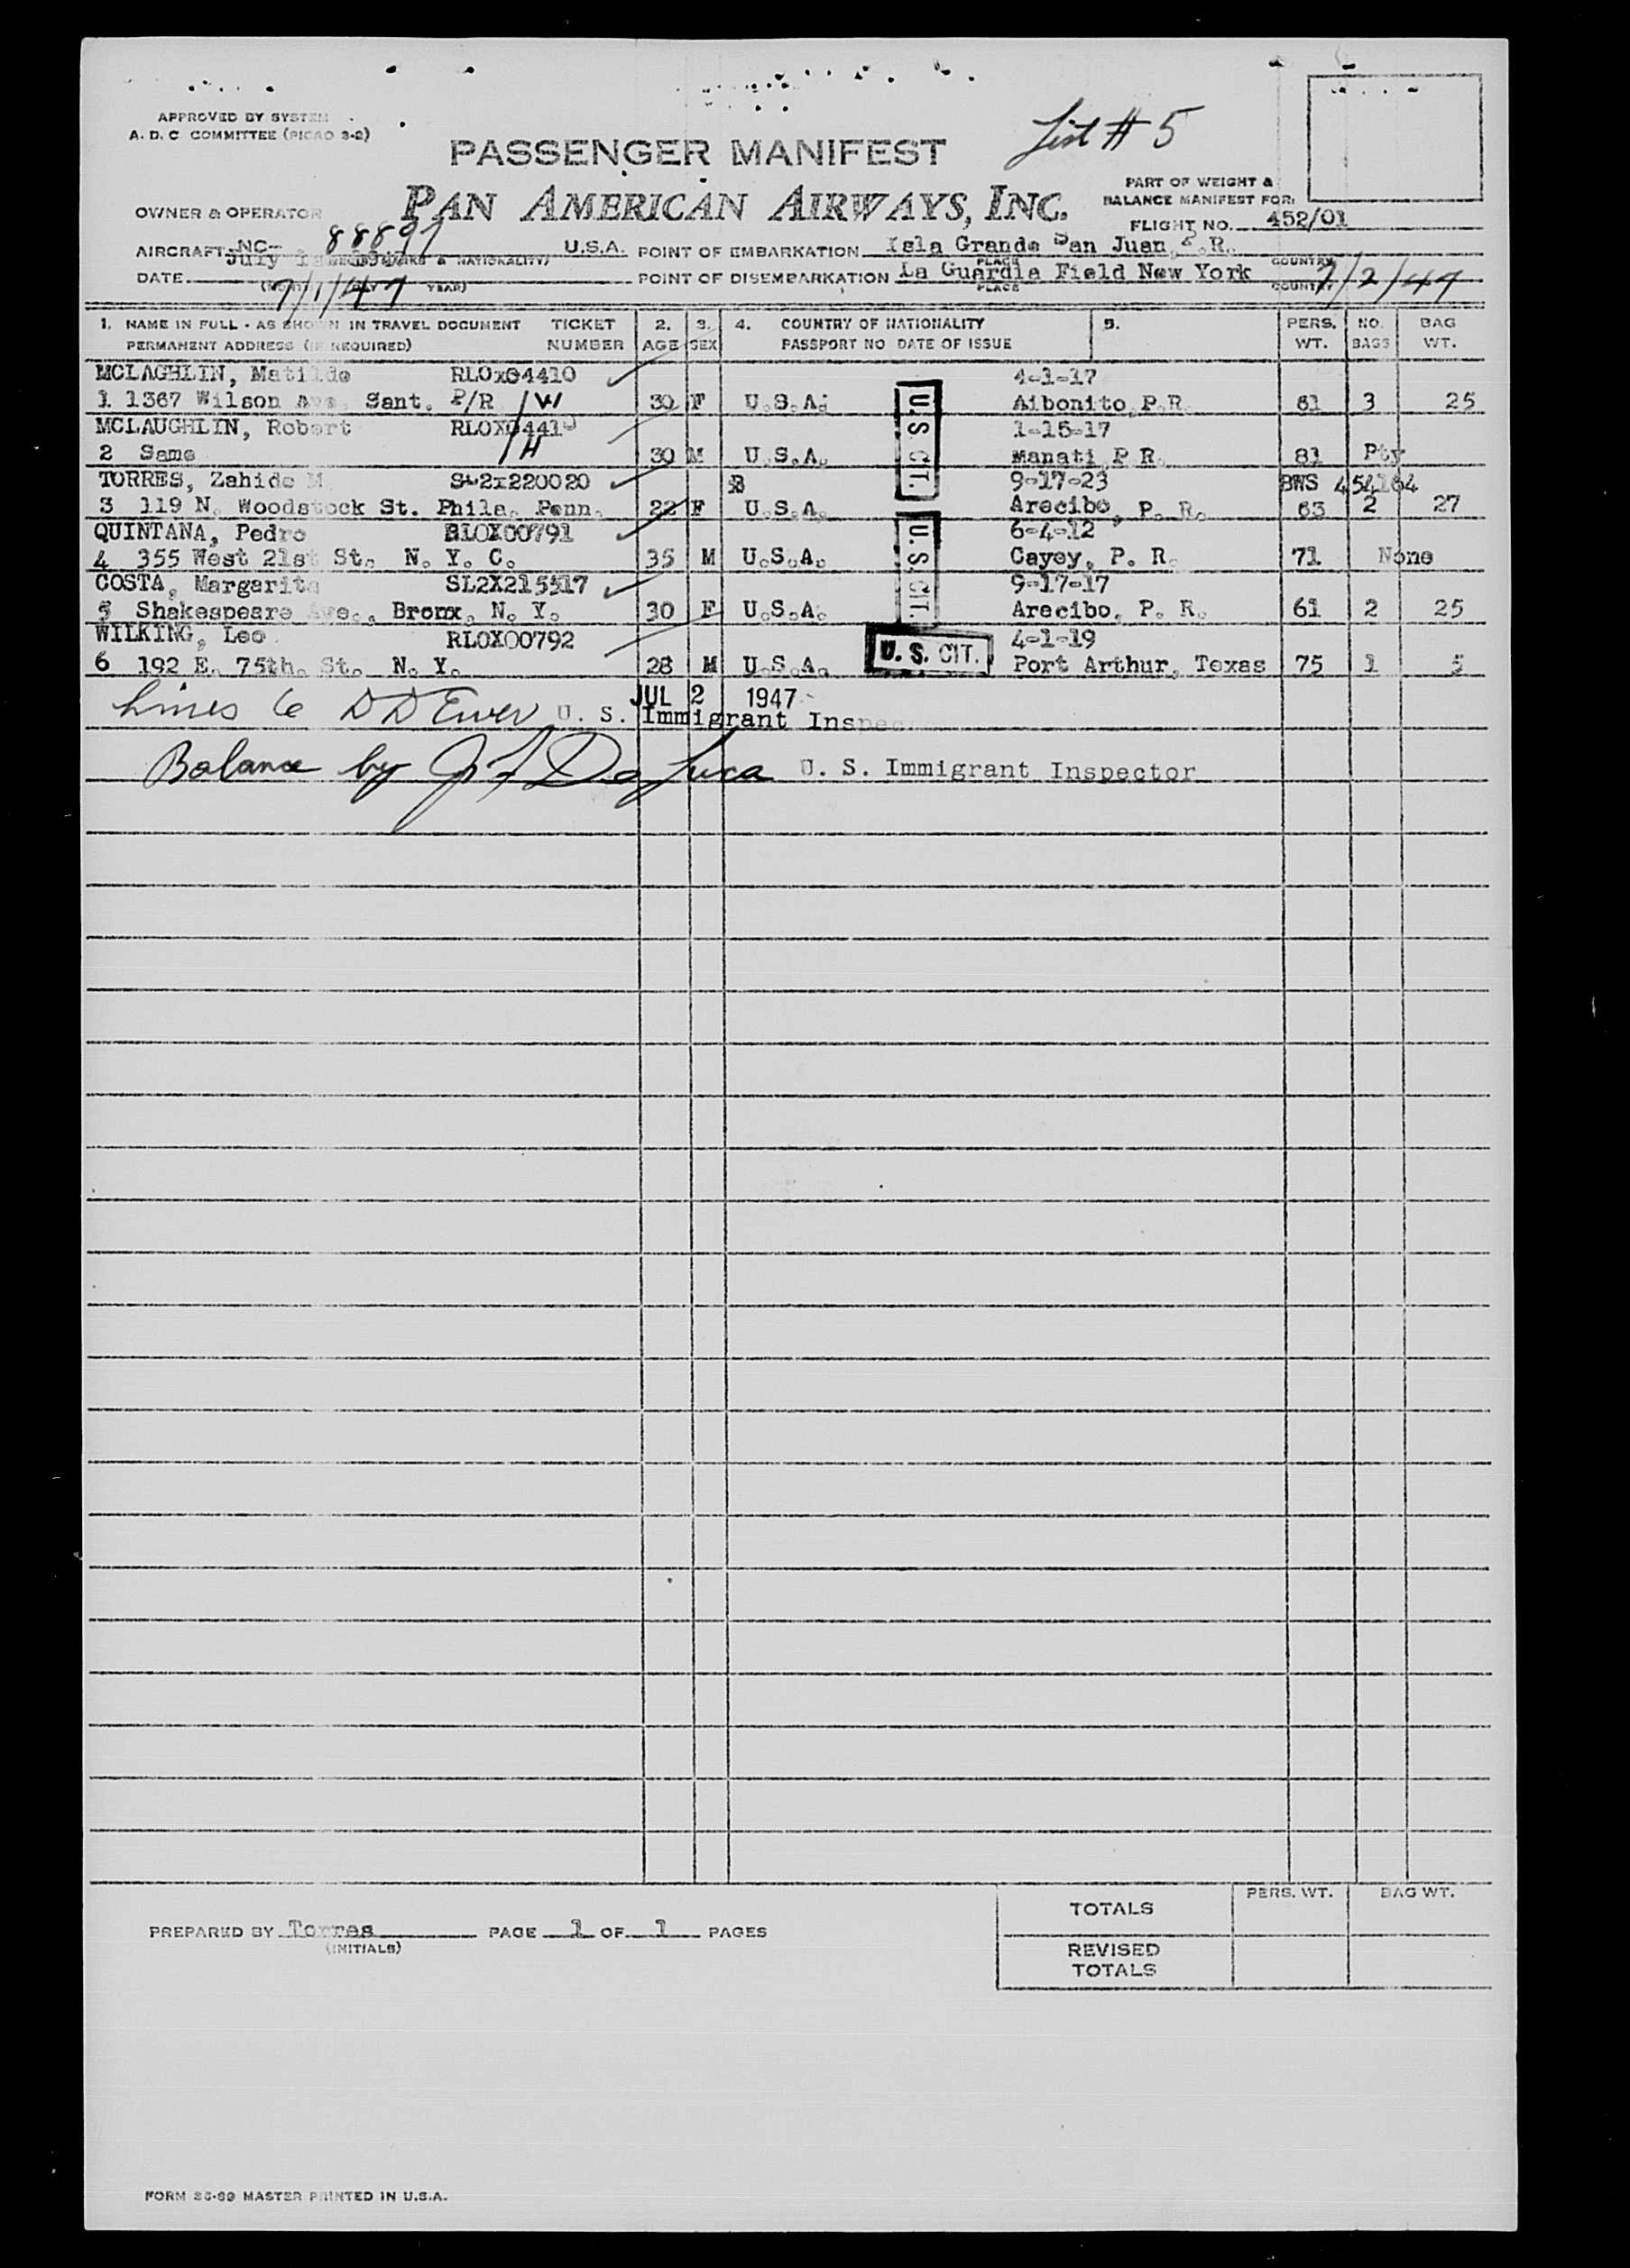 APPROVED BY SYSTEM
A. D. C COMMITTEE (PICAO 3-2)
List # 5
PASSENGER MANIFEST
PART OF WEIGHT &
BALANCE MANIFEST FOR:
OWNER & OPERATOR PAN AMERICAN AIRWAYS, INC.
FLIGHT NO. 452/01
AIRCRAFT NC- 88897 U.S.A. POINT OF EMBARKATION Isla Grande San Juan, P.R.
(MARKS & NATIONALITY) PLACE COUNTRY
July 1 1947
DATE 7/1/47 POINT OF DISEMBARKATION La Guardia Field New York 7/2/47
YEAR) PLACE COUNTRY
1. NAME IN FULL - AS SHOWN IN TRAVEL DOCUMENT TICKET 2. 3. 4. COUNTRY OF NATIONALITY 5. PERS. NO. BAG
PERMANENT ADDRESS (IF REQUIRED) NUMBER AGE SEX PASSPORT NO DATE OF ISSUE WT. BAGS WT.
MCLAGHLIN, Matilde RLOx04410 4-1-17
1 1367 Wilson Ave. Sant. P/R /W 30 F U.S.A. Aibonito, P.R. 61 3 25
MCLAUGHLIN, Robert RLOX04410 1-15-17
2 Same /H 30 M U.S.A. Manati P R. 81 Pty
TORRES, Zahide M 2x220020 9-17-23 BWS 454164
3 119 N. Woodstock St. Phila. Penn. 22 F U.S.A. Arecibo, P. R. 63 2 27
QUINTANA, Pedro RLOX00791 6-4-12
4 355 West 21st St. N. Y. C. 35 M U.S.A. Cayey, P. R. 71 None
COSTA, Margarita SL2X215517 9-17-17
5 Shakespeare Ave., Bronx, N. Y. 30 F U.S.A. Arecibo, P. R. 61 2 25
WILKING, Leo RLOX00792 4-1-19
6 192 E. 75th. St. N. Y. 28 M U.S.A. Port Arthur, Texas 75 1 5
U.S. CIT.
U.S. CIT.
U. S. CIT.
JUL 2 1947
Lines 6 D D Ewer U. S. Immigrant Inspec
Balance by J F De Luca U. S. Immigrant Inspector
TOTALS PERS. WT. BAG WT.
PREPARED BY Torres PAGE 1 OF 1 PAGES
(INITIALS)
REVISED
TOTALS
FORM 36-69 MASTER PRINTED IN U.S.A.